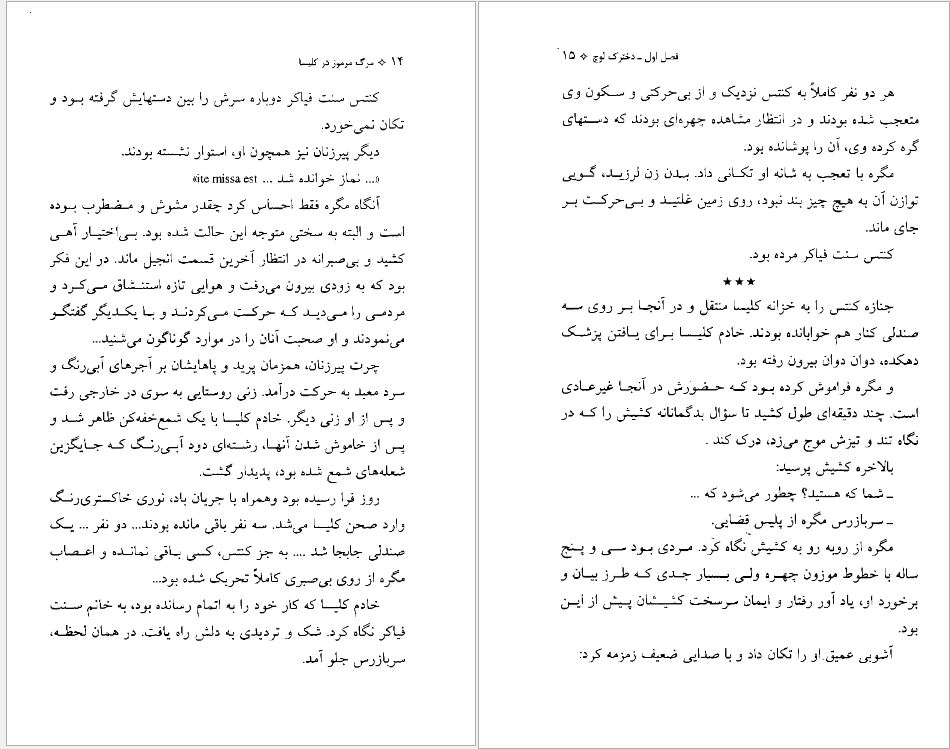 ۱۴ ✧ مرگ مرموز در کلیسا
کنتس سنت فیاکر دوباره سرش را بین دستهایش گرفته بود و
تکان نمی‌خورد.
دیگر پیرزنان نیز همچون او، استوار نشسته بودند.
«... نماز خوانده شد ... ite missa est»
آنگاه مگره فقط احساس کرد چقدر مشوش و مضطرب بوده
است و البته به سختی متوجه این حالت شده بود. بی‌اختیار آهی
کشید و بی‌صبرانه در انتظار آخرین قسمت انجیل ماند. در این فکر
بود که به زودی بیرون می‌رفت و هوایی تازه استنشاق می‌کرد و
مردمی را می‌دید که حرکت می‌کردند و با یکدیگر گفتگو
می‌نمودند و او صحبت آنان را در موارد گوناگون می‌شنید...
چرت پیرزنان، همزمان پرید و پاهایشان بر آجرهای آبی‌رنگ و
سرد معبد به حرکت درآمد. زنی روستایی به سوی در خارجی رفت
و پس از او زنی دیگر. خادم کلیسا با یک شمع‌خفه‌کن ظاهر شد و
پس از خاموش شدن آنها، رشته‌ای دود آبی‌رنگ که جایگزین
شعله‌های شمع شده بود، پدیدار گشت.
روز فرا رسیده بود وهمراه با جریان باد، نوری خاکستری‌رنگ
وارد صحن کلیسا می‌شد. سه نفر باقی مانده بودند... دو نفر ... یک
صندلی جابجا شد .... به جز کنتس، کسی باقی نمانده و اعصاب
مگره از روی بی‌صبری کاملاً تحریک شده بود...
خادم کلیسا که کار خود را به اتمام رسانده بود، به خانم سنت
فیاکر نگاه کرد. شک و تردیدی به دلش راه یافت. در همان لحظه،
سربازرس جلو آمد.
فصل اول ـ دخترک لوچ ✧ ۱۵
هر دو نفر کاملاً به کنتس نزدیک و از بی‌حرکتی و سکون وی
متعجب شده بودند و در انتظار مشاهده چهره‌ای بودند که دستهای
گره کرده وی، آن را پوشانده بود.
مگره با تعجب به شانه او تکانی داد. بدن زن لرزید، گویی
توازن آن به هیچ چیز بند نبود، روی زمین غلتید و بی‌حرکت بر
جای ماند.
کنتس سنت فیاکر مرده بود.
★★★
جنازه کنتس را به خزانه کلیسا منتقل و در آنجا بر روی سه
صندلی کنار هم خوابانده بودند. خادم کلیسا برای یافتن پزشک
دهکده، دوان دوان بیرون رفته بود.
و مگره فراموش کرده بود که حضورش در آنجا غیرعادی
است. چند دقیقه‌ای طول کشید تا سؤال بدگمانانه کشیش را که در
نگاه تند و تیزش موج می‌زد، درک کند .
بالاخره کشیش پرسید:
ـ شما که هستید؟ چطور می‌شود که ...
ـ سربازرس مگره از پلیس قضایی.
مگره از روبه رو به کشیش نگاه کرد. مردی بود سی و پنج
ساله با خطوط موزون چهره ولی بسیار جدی که طرز بیان و
برخورد او، یاد آور رفتار و ایمان سرسخت کشیشان پیش از این
بود.
آشوبی عمیق او را تکان داد و با صدایی ضعیف زمزمه کرد: